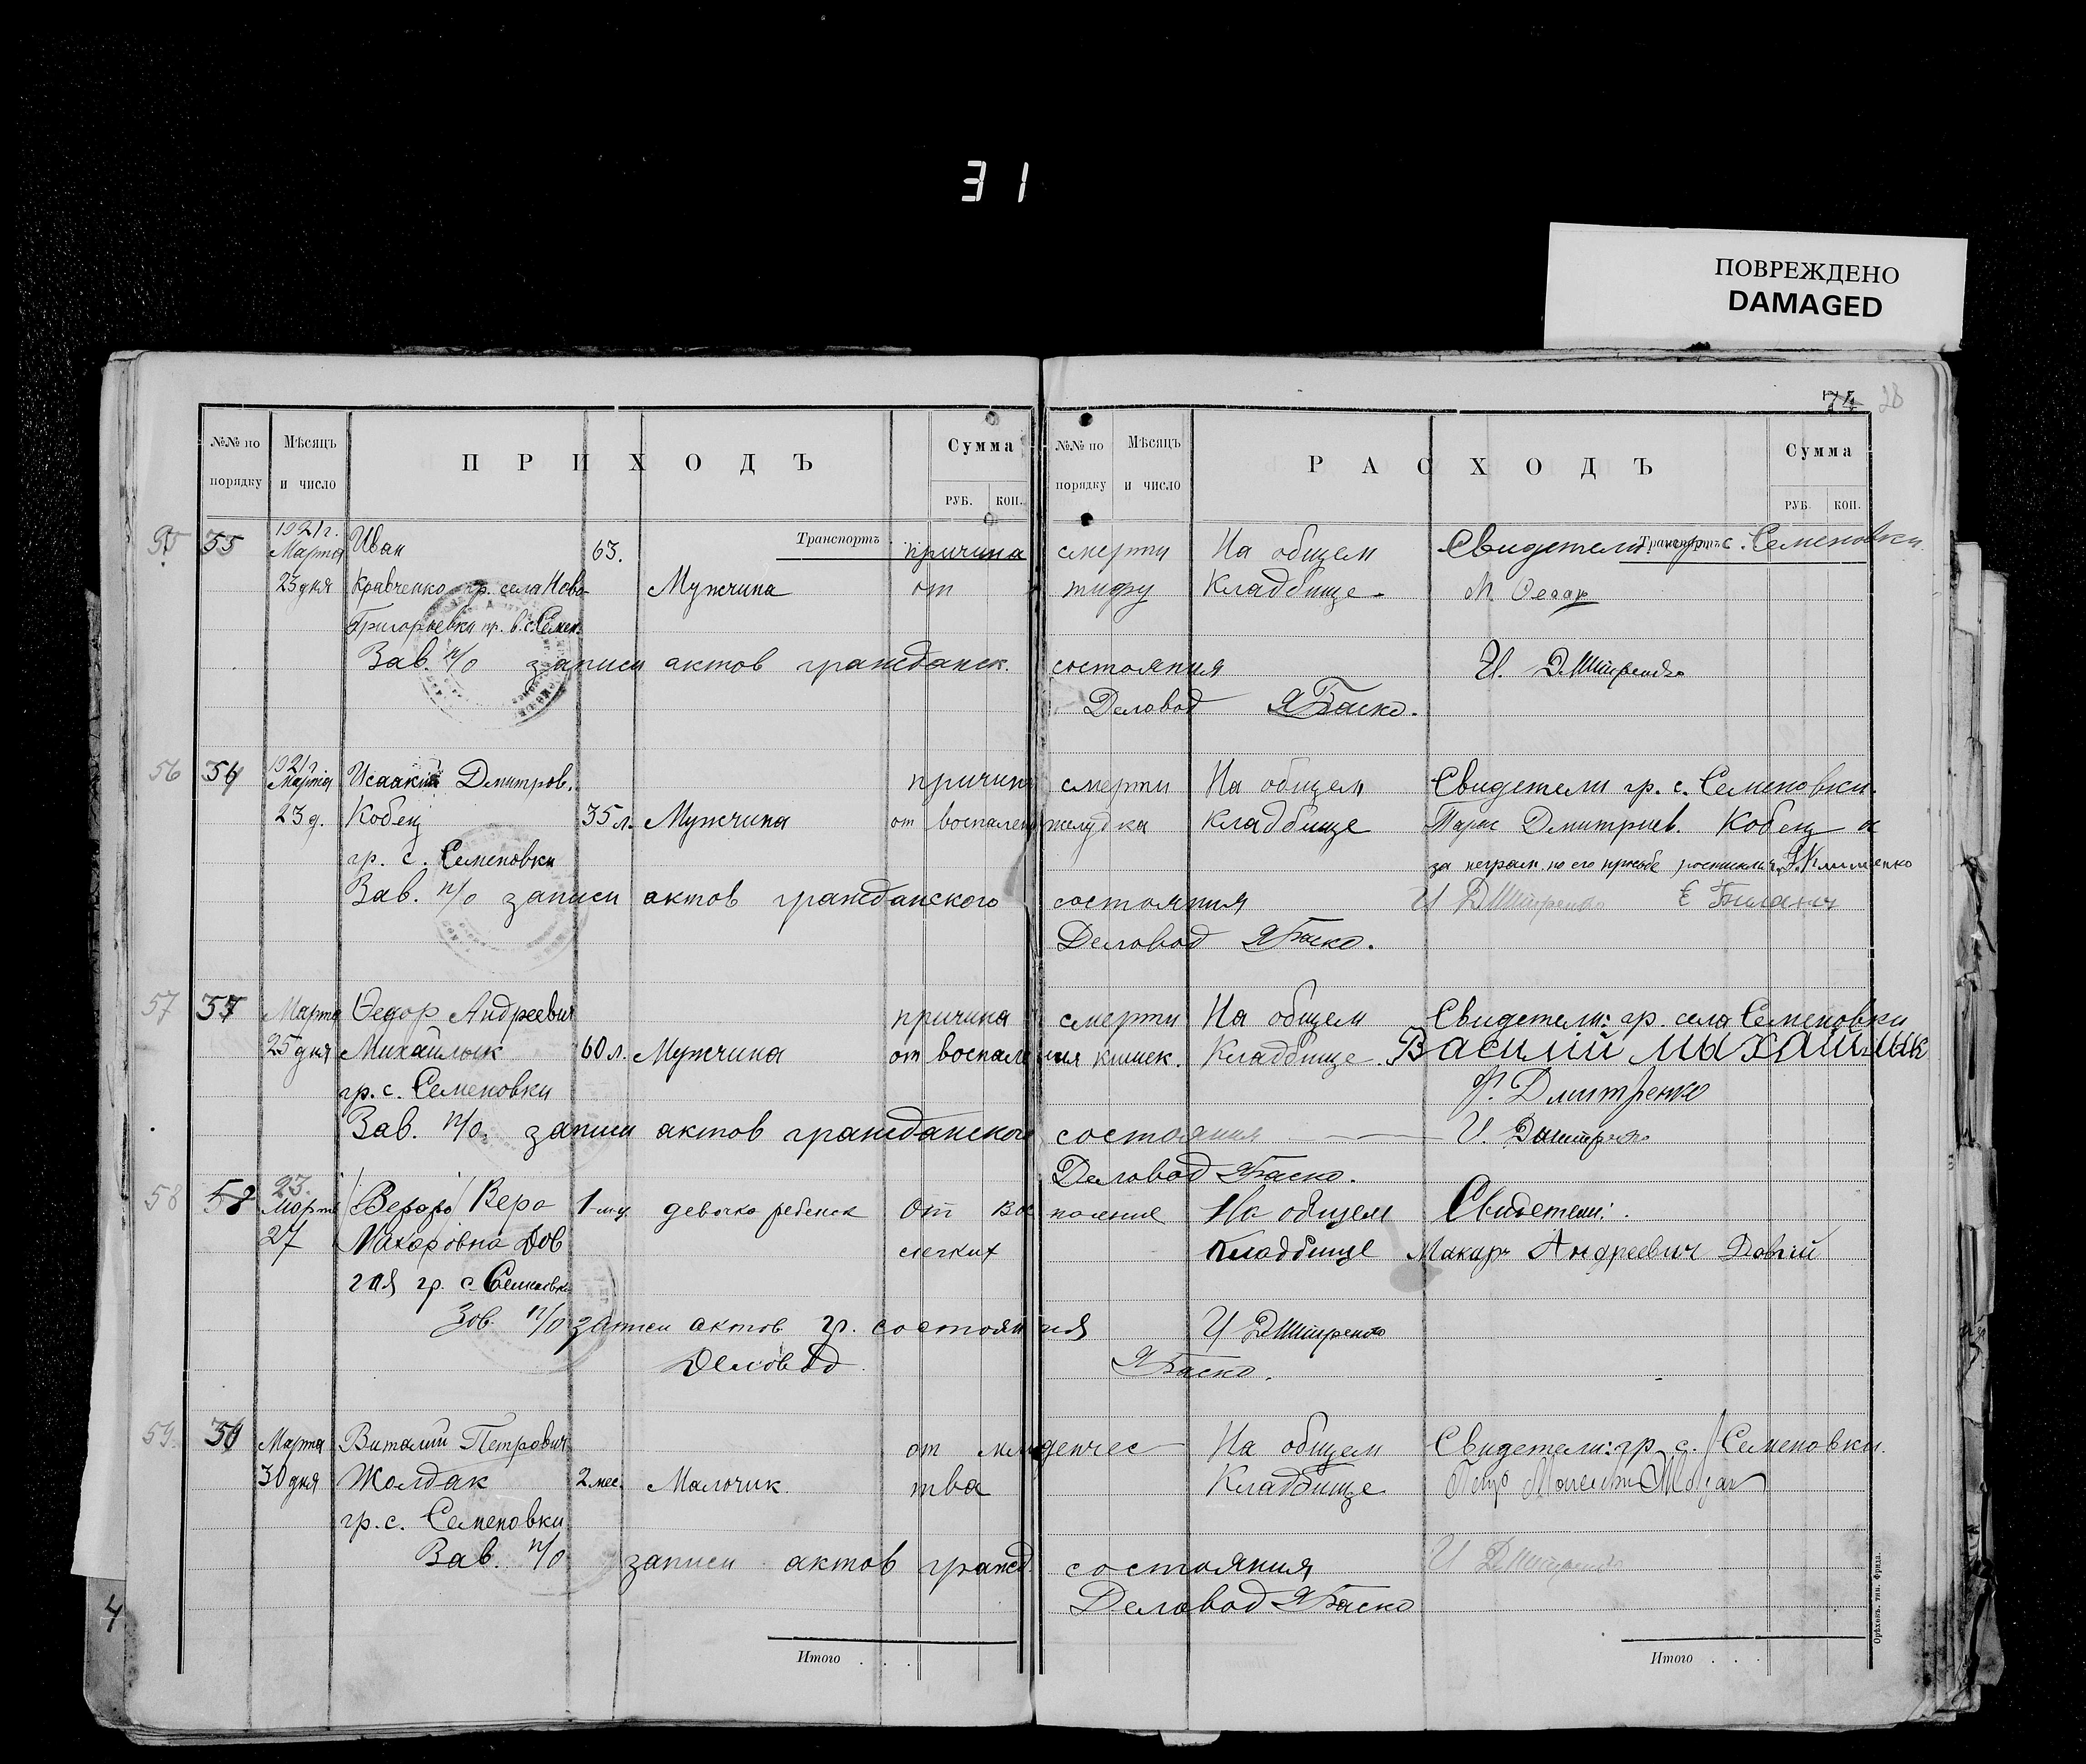 31
ПОВРЕЖДЕНО
DAMAGED
74 28
№№ по порядку Мѣсяцъ и число ПРИХОДЪ Сумма РУБ. КОП.
№№ по порядку Мѣсяцъ и число РАСХОДЪ Сумма РУБ. КОП.
Транспортъ Транспортъ
55 1921 г.
Марта Иван 63. причина смерти На общем Свидетели гр. с. Семеновки
23 дня Кравченко гр. села Ново- Мужчина от тифу Кладбище.
Григорьевки пр. в. с. Семен.
Зав. п/о записи актов гражданск. состояния И. Дмитренко
Деловод Я Баско.
56 56 1921 г.
Марта Исаакий Дмитров. причина смерти На общем Свидетели гр. с. Семеновки.
23 д. Кобец 35 л. Мужчина от воспален желудка кладбище Тарас Дмитриев. Кобец а
гр. с. Семеновки за неграм. по его просьбе росписался Клименко
Зав. п/о записи актов гражданского состояния И Дмитренко
Деловод Я Баско.
57 57 Марта Федор Андреевич причина смерти На общем Свидетели: гр. села Семеновки
25 дня Михайлык 60 л. Мужчина от воспале ния кишек. Кладбище. Василий Мыхайлык
гр. с. Семеновки Ф. Дмитренко
Зав. п/о. записи актов гражданского состояния И. Дмитренко
Деловод Я Баско.
58 58 23.
Марта Вера 1 девочка ребенок От Вос паление На общем Свидетели:
27 Макаровна Дов легких Кладбище Макар Андреевич Довгий
гая гр. с Семеновки
Зав. п/о записи актов гр. состоян ия И Дмитренко
Деловод Я Баско.
59. 59 Марта Виталий Петрович от мла денчес На общем Свидетели: гр. с. Семеновки.
30 дня Жолдак 2 мес. Мальчик. тва Кладбище
гр. с. Семеновки.
Зав. п/о записи актов гражд. состояния И Дмитренко
Деловод Я Баско
4
Итого . . . Итого . . .
Орѣховъ. тип. Фрида.